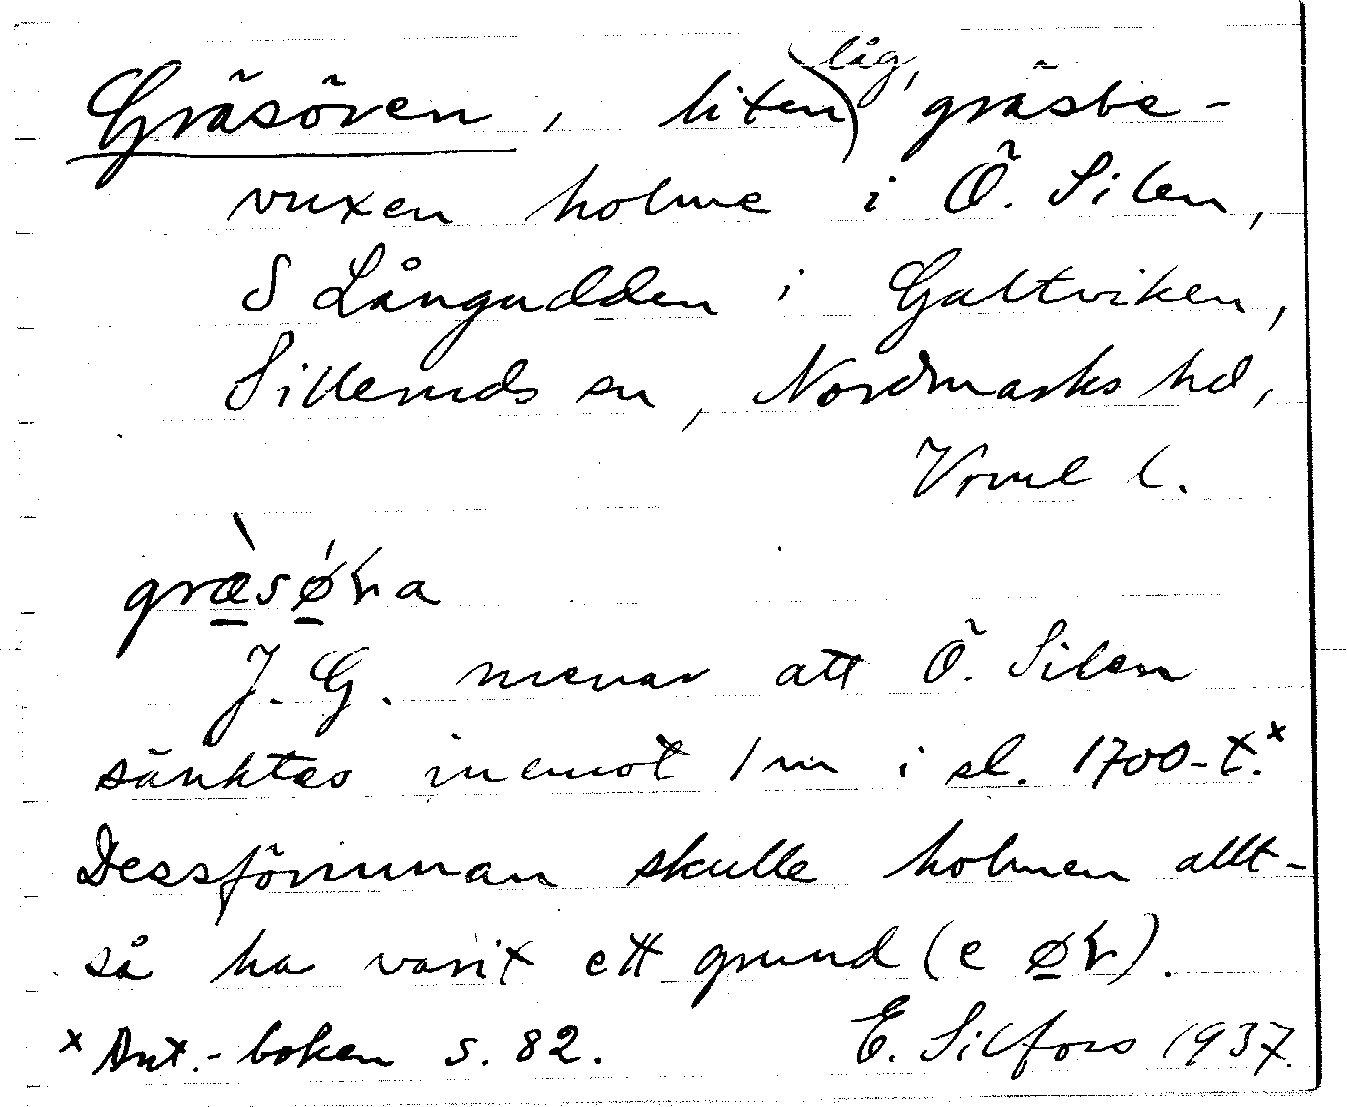 Gräsören, liten, låg, gräsbe-
vuxen holme i Ö. Silen,
S Långudden i Galtviken,
Sillerud sn, Nordmarks hd,
Vrml l.
græ̀søra
J. G. menar att Ö. Silen
sänktes inemot 1 m i sl. 1700-t.x
Dessförinnan skulle holmen allt-
så ha varit ett grund (e ør).
x Ant.-boken s. 82.
E. Silfors 1937.